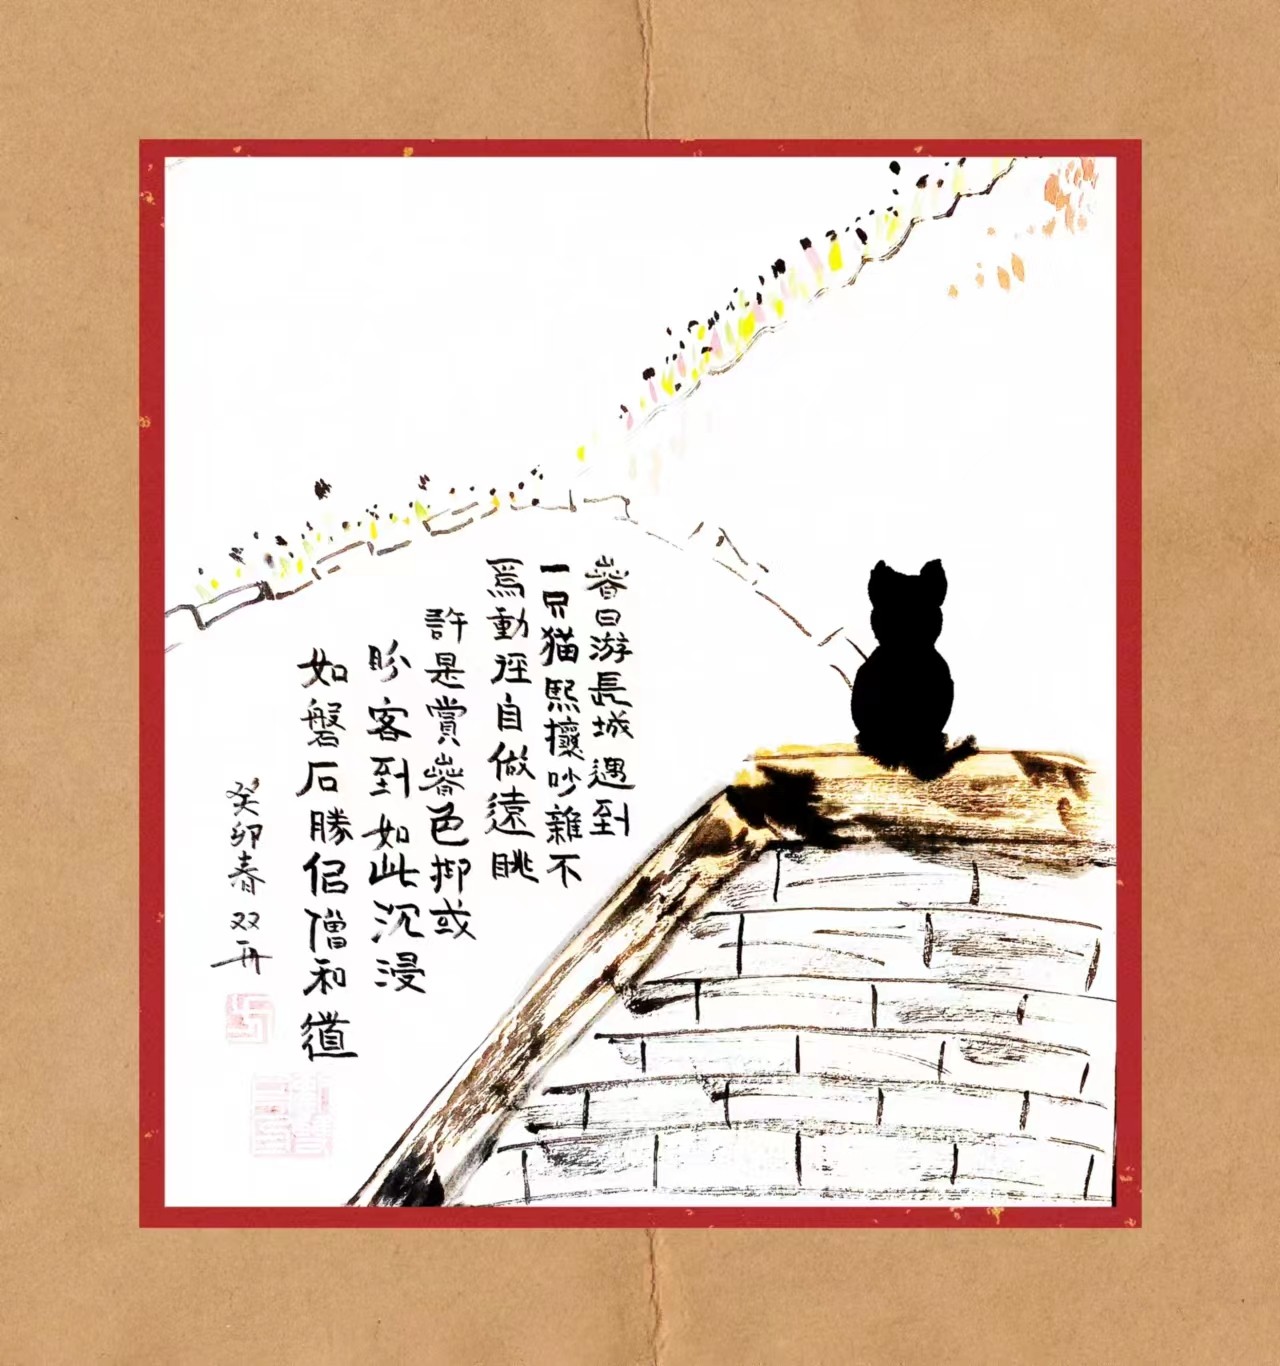 春日游長城遇到
一只猫熙攘吵雜不
爲動徑自做遠眺
許是賞春色抑或
盼客到如此沉浸
如磐石勝侣僧和道
癸卯春 双